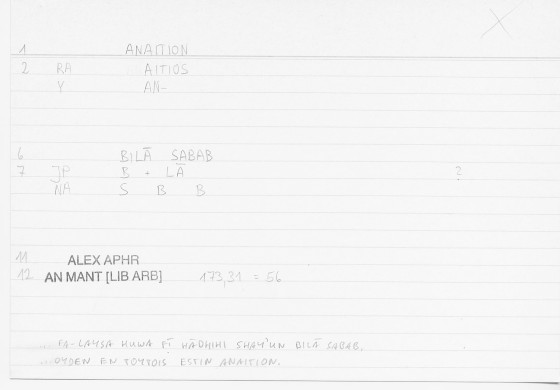 1 ANAITION
2 RA AITIOS
Y AN-
6 BILĀ SABAB
7 JP B + LĀ ?
NA S B B
11 ALEX APHR
12 AN MANT [LIB ARB] 173,31 = 56
... FA-LAYSA HUWA FĪ HĀDHIHI SHAY'UN BILĀ SABAB.
... OYDEN EN TOYTOIS ESTIN ANAITION.